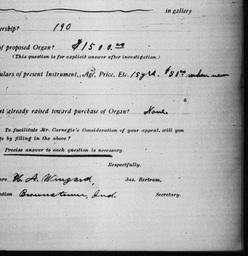 in gallery
ership? 190
of proposed Organ? $1500.00
(This question is for explicit answer after investigation.)
ulars of present Instrument, Age, Price, Etc. 15 yrd. $80.00 when new
nt already raised toward purchase of Organ? None.
To facilitate Mr. Carnegie's Consideration of your appeal, will you
e by filling in the above?
Precise answer to each question is necessary.
Respectfully,
A. Wingard, Jas. Bertram,
ition Brownstown, Ind. Secretary.